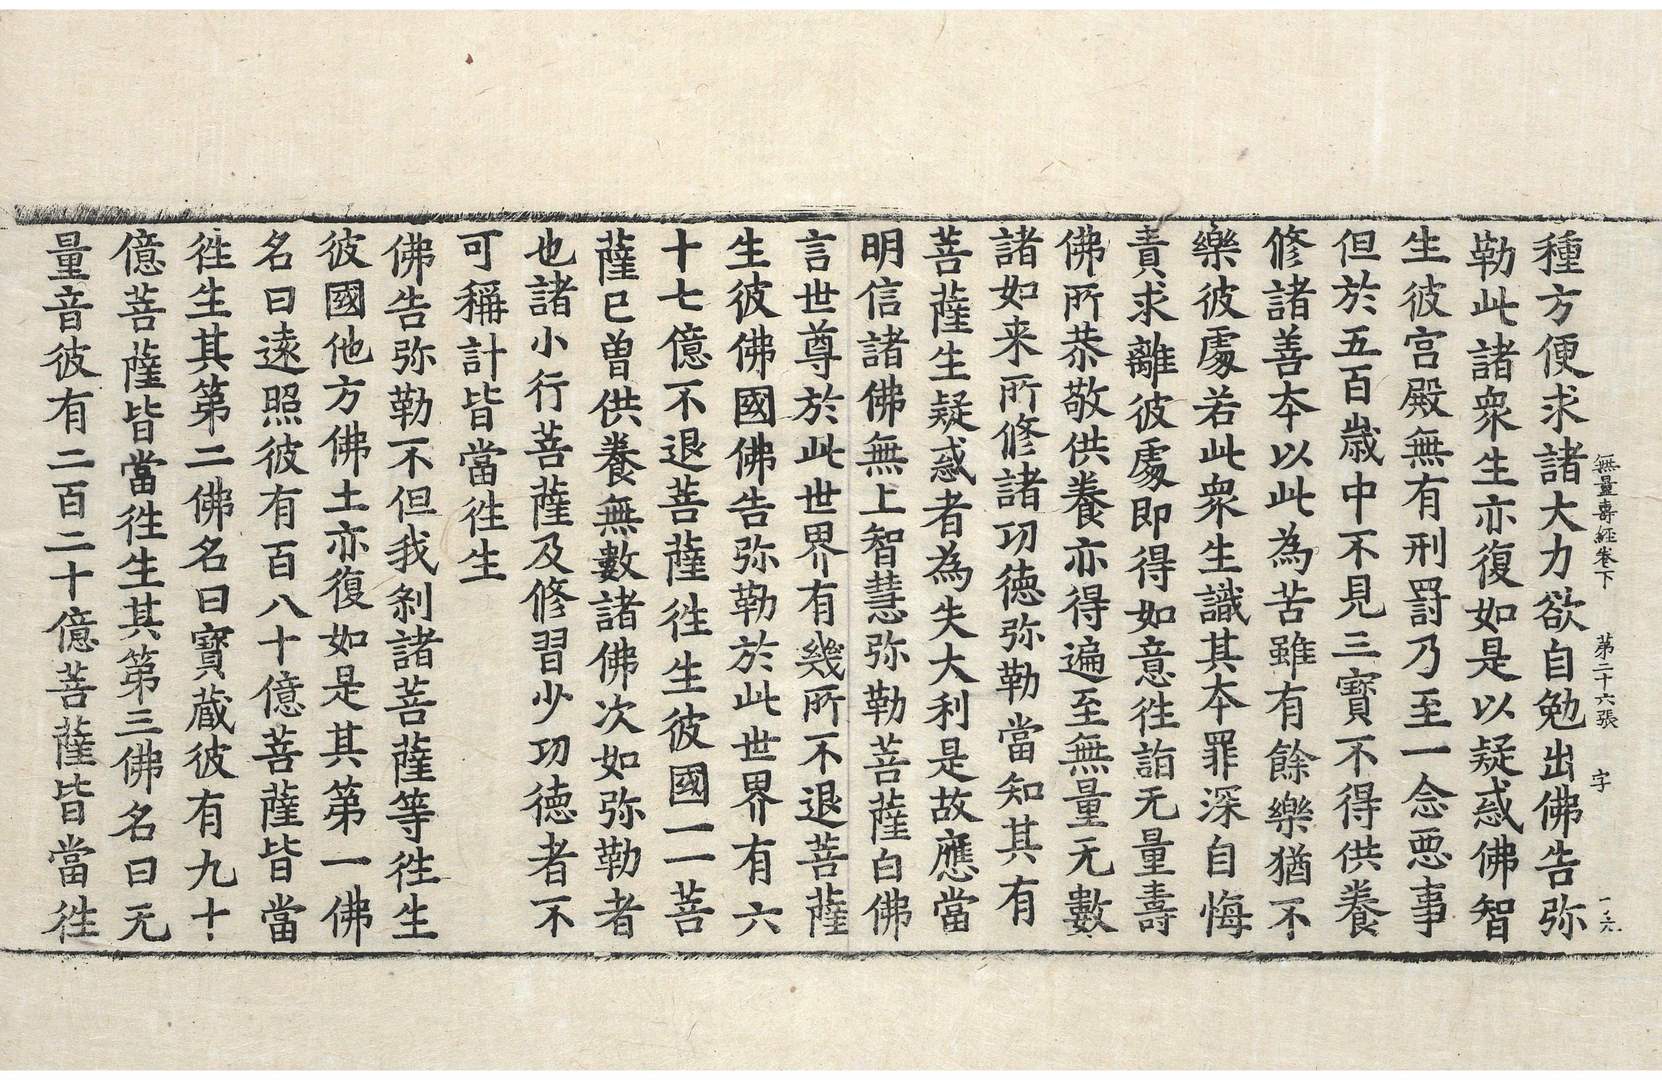 無量壽經卷下　第二十六張　字
種方便求諸大力欲自勉出佛告弥
勒此諸衆生亦復如是以疑惑佛智
生彼宮殿無有刑罰乃至一念惡事
但於五百歲中不見三寶不得供養
修諸善夲以此為苦雖有餘樂猶不
樂彼處若此衆生識其夲罪深自悔
責求離彼處即得如意徃詣无量壽
佛所恭敬供養亦得遍至無量无數
諸如来所修諸功德弥勒當知其有
菩薩生疑惑者為失大利是故應當
明信諸佛無上智慧弥勒菩薩白佛
言世尊於此世界有幾所不退菩薩
生彼佛國佛告弥勒於此世界有六
十七億不退菩薩徃生彼國一一菩
薩已曾供養無數諸佛次如弥勒者
也諸小行菩薩及修習少功德者不
可稱計皆當徃生
佛告弥勒不但我剎諸菩薩等徃生
彼國他方佛土亦復如是其第一佛
名曰遠照彼有百八十億菩薩皆當
徃生其第二佛名曰寶藏彼有九十
億菩薩皆當徃生其第三佛名曰无
量音彼有二百二十億菩薩皆當徃